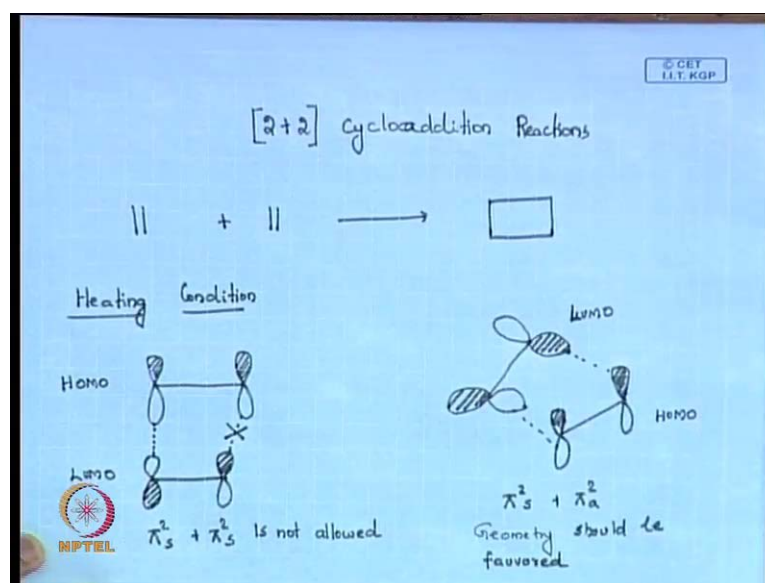 © CET
I.I.T. KGP
[2+2] Cycloaddition Reactions
|| + || ⟶
Heating Condition
HOMO
LUMO
π²s + π²s Is not allowed
LUMO
HOMO
π²s + π²a
Geometry should be
fauvored
NPTEL